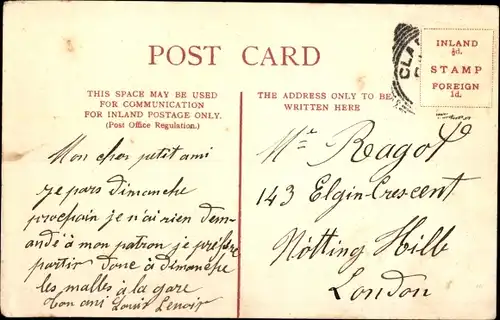 POST CARD
THIS SPACE MAY BE USED
FOR COMMUNICATION
FOR INLAND POSTAGE ONLY.
(Post Office Regulation.)
THE ADDRESS ONLY TO BE
WRITTEN HERE
INLAND
½d.
STAMP
FOREIGN
1d.
CLA
Mon cher petit ami
je pars dimanche
prochain je n'ai rien dem-
andé à mon patron je préfère
partir donc à dimanche
les malles à la gare
ton ami Louis Lenoir
Mr Ragot
143 Elgin-Crescent
Notting Hill
London